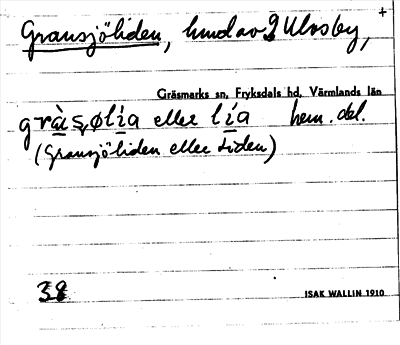 Gransjöliden, hmd av 9 Ulvsby, +
Gräsmarks sn, Fryksdals hd, Värmlands län
gràʂølía eller lía hem. del.
(Gransjöliden eller Liden)
38
ISAK WALLIN 1910